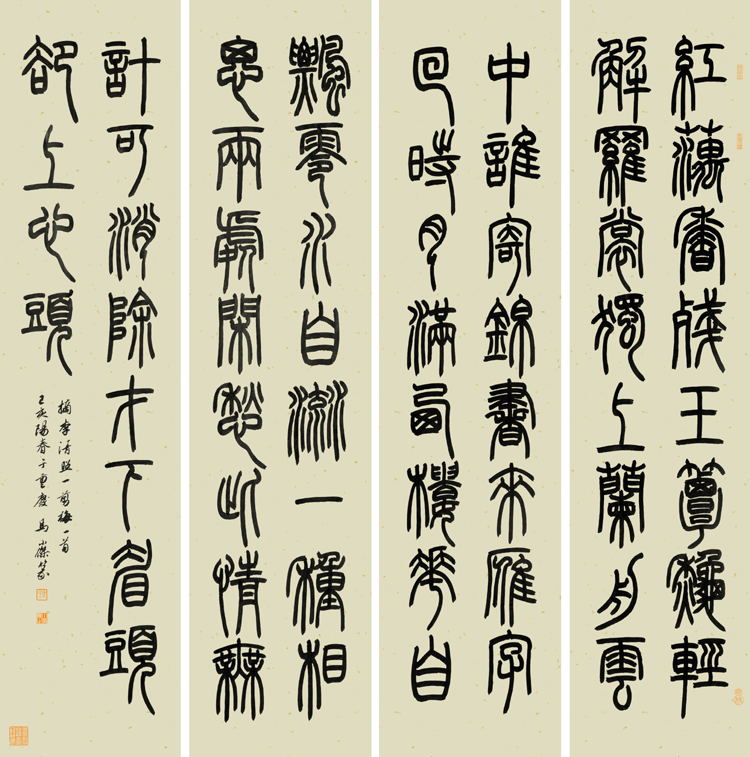 紅藕香殘玉簟秋輕
解羅裳獨上蘭舟雲
中誰寄錦書來雁字
回時月滿西樓花自
飄零水自流一種相
思兩處閑愁此情無
計可消除才下眉頭
卻上心頭
摘李清照一剪梅一首
壬辰陽春于重慶馬篆